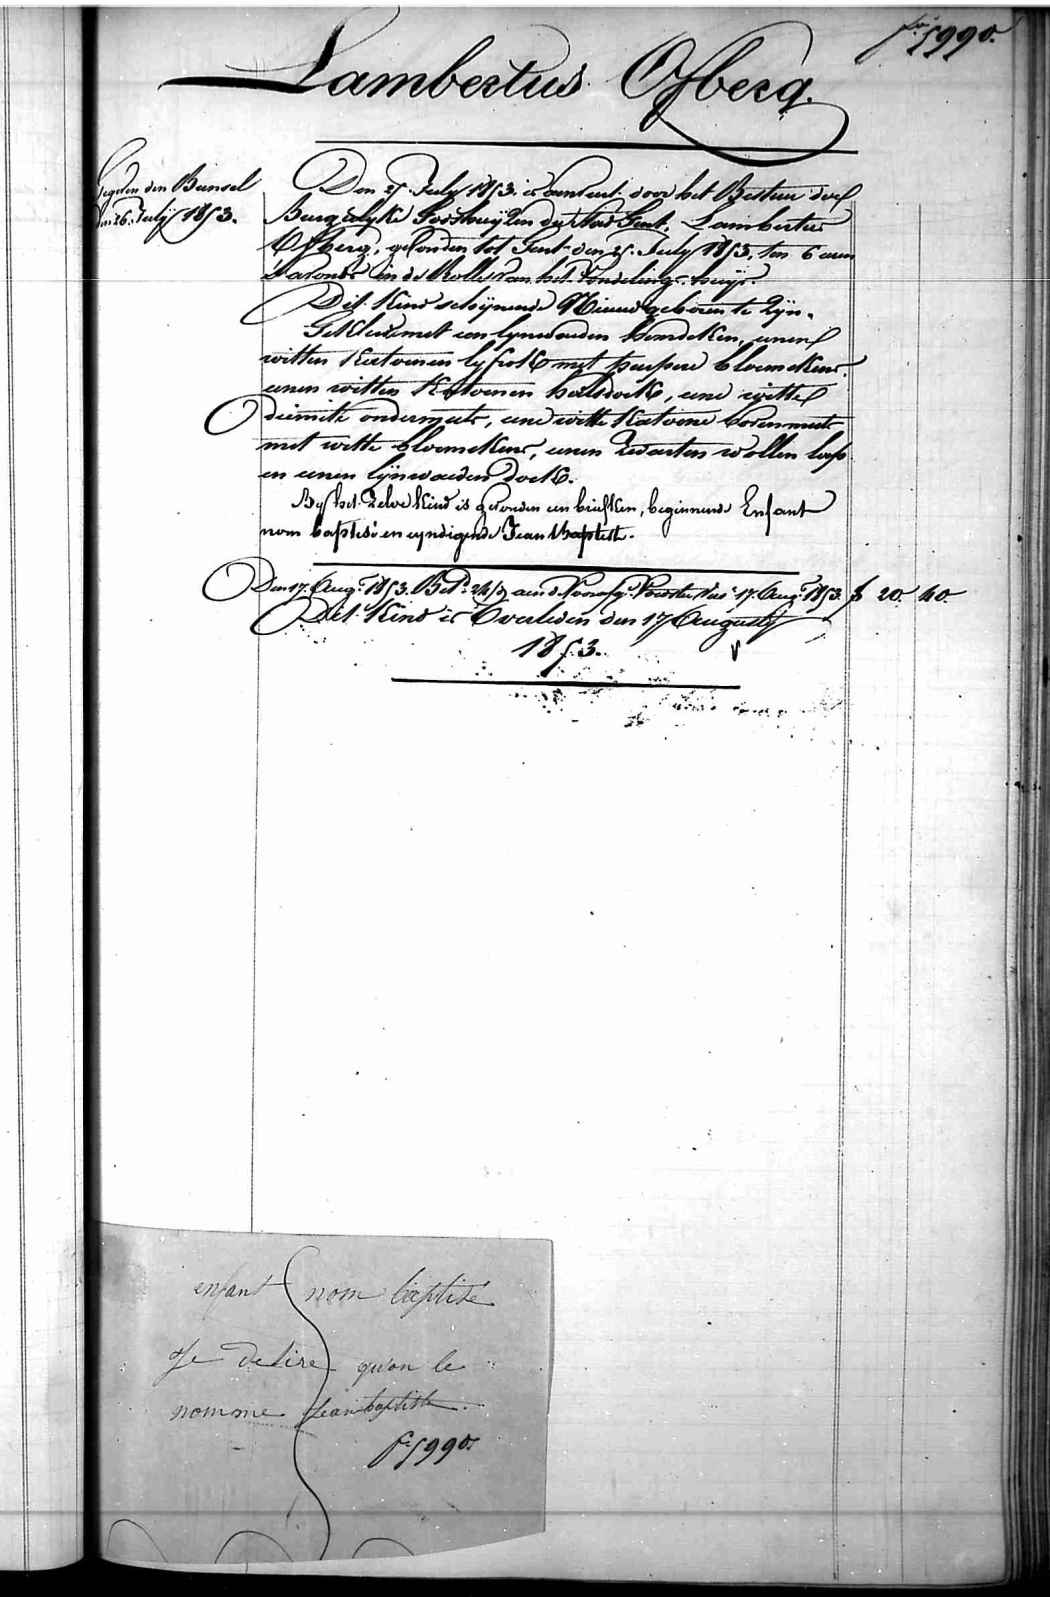 fo. 5990.
Lambertus Ofberg.
Gegeven den Bunsel
den 26. July 1853.
Den 25. July 1853. is aenveert door het Bestuur der
Burgerlyke Godshuyzen der Stad Gent, Lambertus
Ofberg, gevonden tot Gent den 25. July 1853, ten 6 uren
's avonds in de Rolle van het Vondelings-huys.
Dit Kind schynende Nieuwgeboren te zyn.
Gekleed met een lynwaeden hemdeken, eenen
witten katoenen lyfrok met purpere bloemekens,
eenen witten katoenen halsdoek, eene witte
diemitte ondermuts, eene witte katoene bovenmuts
met witte bloemekens, eenen zwarten wollen lap
en eenen lynwaeden doek.
By het zelve kind is gevonden een briefken, beginnende Enfant
nom baptisé en eyndigende Jean Baptiste.
Den 17. Aug.t 1853. Bet.d aen 17. Aug.t 1853. f 20. 40.
Dit Kind is Overleden den 17 Augusty
1853.
enfant nom baptisé
Je desire qu'on le
nomme Jean baptiste.
fo. 5990.